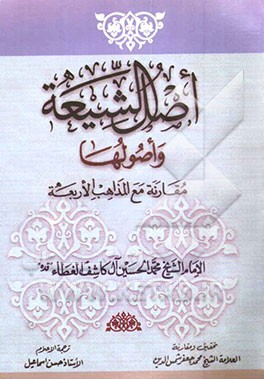 أصل الشيعة
وأصولها
مقارنة مع المذاهب الأربعة
الإمام الشيخ محمد الحسين آل كاشف الغطاء
تحقيق ومقارنة
العلامة الشيخ محمد جعفر شمس الدين
ترجمة الاعلام
الأستاذ حسن اسماعيل